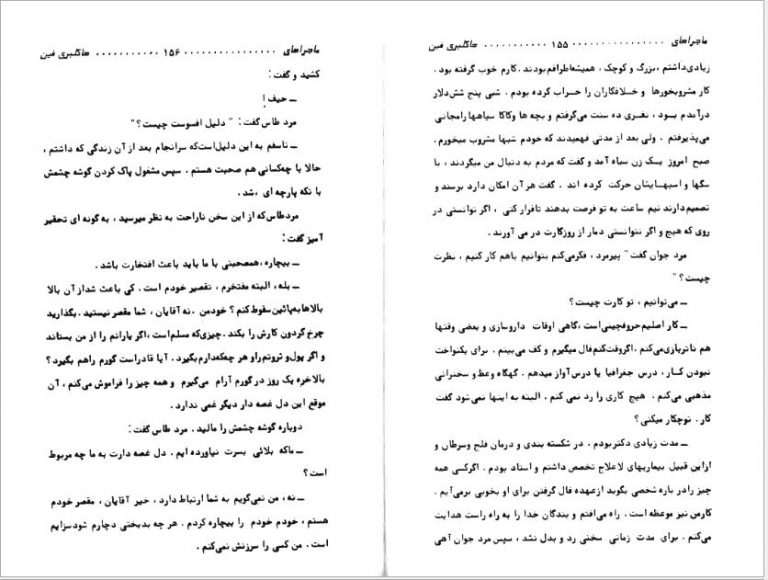 ماجراهای ۰۰۰۰۰۰۰۰۰۰۰۰۰۰۰ ۱۵۵ ۰۰۰۰۰۰۰۰۰۰۰ هاکلبری فین
زیادی‌داشتم ،بزرگ و کوچک ، همیشه‌اطرافم‌بودند . کارم خوب گرفته بود .
کار مشروبخورها و خلافکاران را خراب کرده بودم . شبی پنج شش‌دلار
درآمدم بسود ، نفسری ده سنت می‌گرفتم و بچه ها وکاکا سیاهها رامجانی
می‌پذیرفتم . ولی بعد از مدتی فهمیدند که خودم شبها مشروب میخورم .
صبح امروز یسک زن سیاه آمد و گفت که مردم به دنبال من میگردند ، با
سگها و اسبهسایشان حرکت کرده اند . گفت هر آن امکان دارد برسند و
تصمیم‌دارند نیم ساعت به تو فرصت بدهند تافرار کنی ، اگر توانستی در
روی که هیچ و اگر نتوانستی دمار از روزگارت در می آورند .
مرد جوان گفت " پیرمرد ، فکرمی‌کنم بتوانیم باهم کار کنیم ، نظرت
چیست؟ "
ــ می‌توانیم ، تو کارت چیست؟
ــ کار اصلیم‌حروفچینی‌است ،گاهی اوقات داروسازی و بعضی وقتها
هم تاتربازی‌می‌کنم .اگروقت‌کنم‌فال میگیرم و کف می‌بینم . برای یکنواخت
نبودن کسار ، درس جغرافیا یا درس‌آواز میدهم . گهگاه وعظ و سخنرانی
مذهبی می‌کنم . هیچ کاری را رد نمی کنم . البته به اینها نمی‌شود گفت
کار . توچکار میکنی؟
ــ مدت زیادی دکتربودم . در شکسته بندی و درمان فلج وسرطان و
ازاین قبیل بیماریهای لاعلاج تخصص داشتم و استاد بودم . اگرکسی همه
چیز رادر باره شخصی بگوید ازعهده فال گرفتن برای او بخوبی برمی‌آیم .
کارمن نیز موعظه است . راه می‌افتم و بندگان خدا را به راه راست هدایت
می‌کنم . برای مدت زمانی سخنی رد و بدل نشد ، سپس مرد جوان آهی
ماجراهای ۰۰۰۰۰۰۰۰۰۰۰۰۰۰۰ ۱۵۶ ۰۰۰۰۰۰۰۰۰۰۰ هاکلبری فین
کشید و گفت :
ــ حیف !
مرد طاس گفت : " دلیل افسوست چیست؟ "
ــ تاسفم به این دلیل‌است‌که سرانجام بعد از آن زندگی که داشتم ،
حالا با چه‌کسانی هم صحبت هستم . سپس مشغول پاک کردن گوشه چشمش
با تکه پارچه ای ،شد .
مردطاس‌که از این سخن ناراحت به نظر میرسید ، به گونه ای تحقیر
آمیز گفت :
ــ بیچاره ،همصحبتی با ما باید باعث افتخارت باشد .
ــ بله ، البته مفتخرم ، تقصیر خودم است . کی باعث شداز آن بالا
بالاها به‌پائین‌سقوط کنم ؟ خودمن .نه آقایان ، شما مقصر نیستید .بگذارید
چرخ گردون کارش را بکند .چیزی‌که مسلم‌است ،اگر یارانم را از من بستاند
و اگر پول‌و ثروتم‌راو هر چه‌که‌دارم‌بگیرد . آیا قادراست گورم راهم بگیرد؟
بالاخره یک روز در گورم آرام می‌گیرم و همه چیز را فراموش می‌کنم ، آن
موقع این دل غصه دار دیگر غمی ندارد .
دوباره گوشه چشمش را مالید . مرد طاس گفت :
ــ ماکه بلائی بسرت نیاورده ایم . دل غصه دارت به ما چه مربوط
است؟
ــ نه ، من نمی‌گویم به شما ارتباط دارد ، خیر آقایان ، مقصر خودم
هستم ، خودم خودم را بیچاره کردم . هر چه بدبختی دچارم شودسزایم
است . من کسی را سرزنش نمی‌کنم .